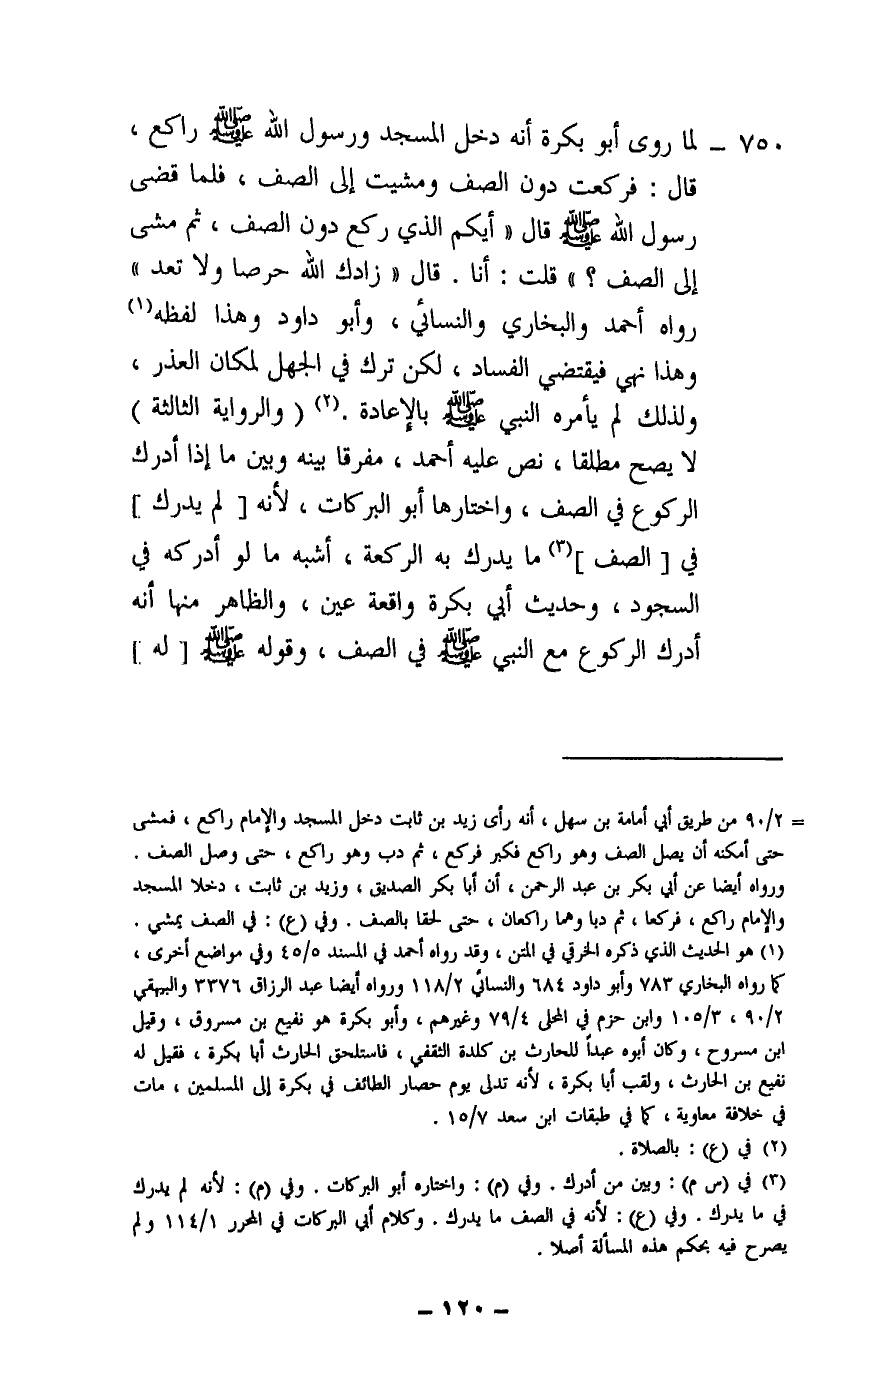 ٧٥٠ ــ لما روى أبو بكرة أنه دخل المسجد ورسول الله ﷺ راكع ،
قال : فركعت دون الصف ومشيت إلى الصف ، فلما قضى
رسول الله ﷺ قال « أيكم الذي ركع دون الصف ، ثم مشى
إلى الصف ؟ » قلت : أنا . قال « زادك الله حرصا ولا تعد »
رواه أحمد والبخاري والنسائي ، وأبو داود وهذا لفظه(١)
وهذا نهي فيقتضي الفساد ، لكن ترك في الجهل لمكان العذر ،
ولذلك لم يأمره النبي ﷺ بالإعادة .(٢) ( والرواية الثالثة )
لا يصح مطلقا ، نص عليه أحمد ، مفرقا بينه وبين ما إذا أدرك
الركوع في الصف ، واختارها أبو البركات ، لأنه [ لم يدرك ]
في [ الصف ](٣) ما يدرك به الركعة ، أشبه ما لو أدركه في
السجود ، وحديث أبي بكرة واقعة عين ، والظاهر منها أنه
أدرك الركوع مع النبي ﷺ في الصف ، وقوله ﷺ [ له ]
= ٩٠/٢ من طريق أبي أمامة بن سهل ، أنه رأى زيد بن ثابت دخل المسجد والإمام راكع ، فمشى
حتى أمكنه أن يصل الصف وهو راكع فكبر فركع ، ثم دب وهو راكع ، حتى وصل الصف .
ورواه أيضا عن أبي بكر بن عبد الرحمن ، أن أبا بكر الصديق ، وزيد بن ثابت ، دخلا المسجد
والإمام راكع ، فركعا ، ثم دبا وهما راكعان ، حتى لحقا بالصف . وفي (ع) : في الصف يمشي .
(١) هو الحديث الذي ذكره الخرقي في المتن ، وقد رواه أحمد في المسند ٤٥/٥ وفي مواضع أخرى ،
كما رواه البخاري ٧٨٣ وأبو داود ٦٨٤ والنسائي ١١٨/٢ ورواه أيضا عبد الرزاق ٣٣٧٦ والبيهقي
٩٠/٢ ، ١٠٥/٣ وابن حزم في المحلى ٧٩/٤ وغيرهم ، وأبو بكرة هو نفيع بن مسروق ، وقيل
ابن مسروح ، وكان أبوه عبداً للحارث بن كلدة الثقفي ، فاستلحق الحارث أبا بكرة ، فقيل له
نفيع بن الحارث ، ولقب أبا بكرة ، لأنه تدلى يوم حصار الطائف في بكرة إلى المسلمين ، مات
في خلافة معاوية ، كما في طبقات ابن سعد ١٥/٧ .
(٢) في (ع) : بالصلاة .
(٣) في (س م) : وبين من أدرك . وفي (م) : واختاره أبو البركات . وفي (م) : لأنه لم يدرك
في ما يدرك . وفي (ع) : لأنه في الصف ما يدرك . وكلام أبي البركات في المحرر ١١٤/١ ولم
يصرح فيه بحكم هذه المسألة أصلا .
ــ ١٢٠ ــ